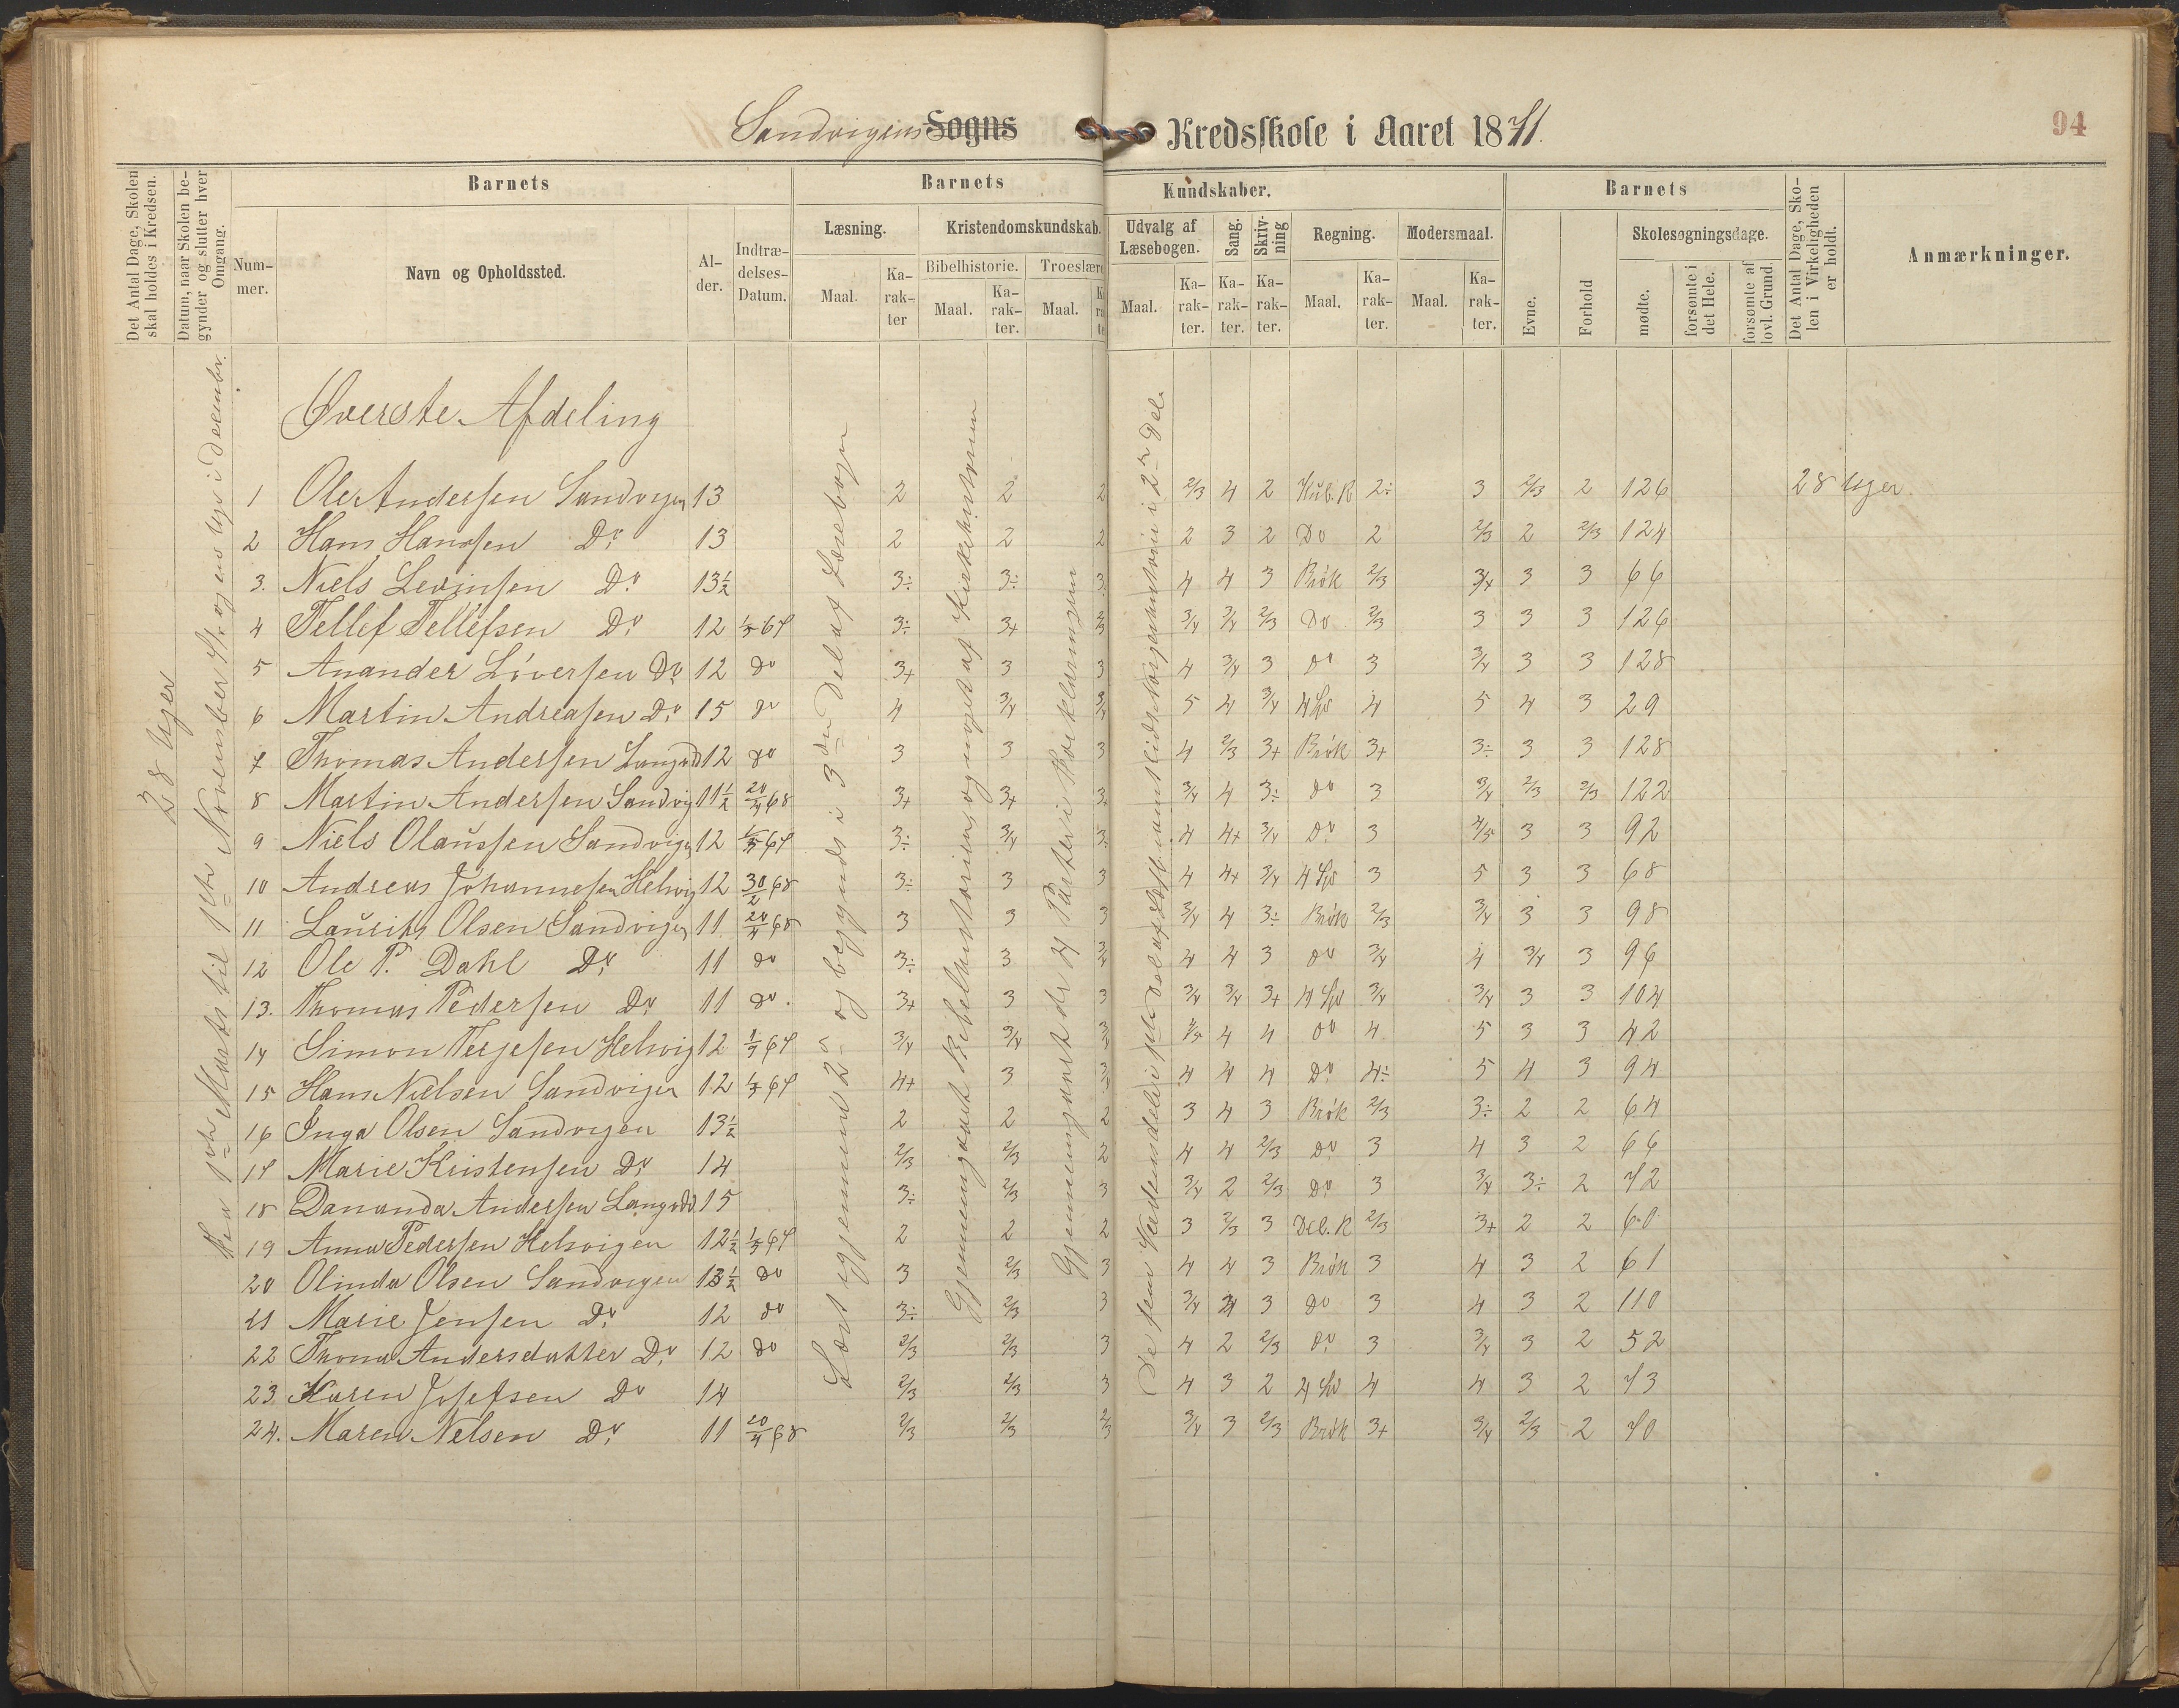 Sandvigens Sogns Kredsskole i Aaret 1871.
94
Det Antal Dage, Skolen skal holdes i Kredsen.
Datum, naar Skolen begynder og slutter hver Omgang.
Barnets
Barnets
Kundskaber.
Barnets
Det Antal Dage, Skolen i Virkeligheden er holdt.
Anmærkninger.
Nummer.
Navn og Opholdssted.
Alder.
Indtrædelses-Datum.
Læsning.
Kristendomskundskab.
Udvalg af Læsebogen.
Sang.
Skrivning
Regning.
Modersmaal.
Evne.
Forhold
Skolesøgningsdage.
Bibelhistorie.
Troeslære
Maal.
Karakter
Maal.
Karakter.
Maal.
Maal.
Karakter.
Karakter.
Karakter.
Maal.
Karakter.
Maal.
Karakter.
mødte.
forsømte i det Hele.
forsømte af lovl. Grund.
28 Uger
Fra 1ste Marts til 1ste November og en Uge i Decembr.
Øverste Afdeling
Læst igjennem 2den og begyndt i 3den Del af Læsebogen
Gjennemgaaet Bibelhistorien og noget af Kirkehistorien
Gjennemgaaet de 4 Parter i Forklaringen
1 Ole Andersen Sandvigen 13 2 2 2 2/3 4 2 Kub. R 2÷ 3 2/3 2 126 28 Uger.
2 Hans Hanssen Do 13 2 2 2 2 3 2 Do 2 2/3 2 2/3 124
3. Niels Levinsen Do 13½ 3÷ 3÷ 3 4 4 3 Brøk 2/3 3/4 3 3 66
4 Tellef Tellefsen Do 12 1/3 67 3÷ 3+ 2/3 3/4 3/4 2/3 Do 2/3 3 3 3 126
5 Anander Löversen Do 12 do 3+ 3 3 4 3/4 3 Do 3 3/4 3 3 128
6 Martin Andreasen Do 15 do 4 3/4 3/4 5 4 3/4 4 Sp 4 5 4 3 29
7 Thomas Andersen Langodd 12 do 3 3 3 4 2/3 3+ Brøk 3+ 3÷ 3 3 128
8 Martin Andersen Sandvig 11½ 20/4 68 3+ 3+ 3 3/4 4 3÷ do 3 3/4 2/3 2/3 122
9 Niels Olaussen Sandvigen 12 1/3 67 3÷ 3/4 3 4 4+ 3/4 Do 3 4/5 3 3 92
10 Andreas Johannesen Helvig 12 30/2 68 3÷ 3 3 4 4+ 3/4 4 Sp 3 5 3 3 68
11 Laurits Olsen Sandvigen 11 20/4 68 3 3 3 3/4 4 3÷ Brøk 2/3 3/4 3 3 98
12 Ole P. Dahl Do 11 do 3÷ 3 3/4 4 4 3 do 3/4 4 3/4 3 96
13. Thomas Pedersen Do 11 do. 3+ 3 3 3/4 3/4 3+ 4 Sp 3/4 3/4 3 3 104
14 Simon Terjesen Helvig 12 1/9 67 3/4 3/4 3/4 4/5 4 4 do 4 5 3 3 42
15 Hans Nielsen Sandvigen 12 1/3 67 4+ 3 3/4 4 4 4 Do 4÷ 5 4 3 94
16 Inga Olsen Sandvigen 13½ 2 2 2 3 4 3 Brøk 2/3 3÷ 2 2 64
17 Marie Kristensen Do 14 2/3 2/3 2 4 4 2/3 Do 3 4 3 2 66
18 Dananda Andersen Langodd. 15 3÷ 2/3 3 3/4 2 2/3 Do 3 3/4 3÷ 2 72
19 Anna Pedersen Helvigen 12½ 1/3 67 2 2 2 3 2/3 3 Del. R 2/3 3+ 2 2 60
20 Olinda Olsen Sandvigen 13½ do 3 2/3 3 4 4 3 Brøk 3 4 3 2 61
21 Marie Jensen Do 12 do 3÷ 2/3 3 3/4 4 3 do 3 4 3 2 110
22 Thona Andersdatter Do 12 do 2/3 2/3 3 4 2 2/3 do 3 3/4 3 2 52
23 Karen Josefsen Do 14 2/3 2/3 3 4 3 2 4 Sp 4 4 3 2 73
24. Maren Nelsen Do 11 20/4 68 2/3 2/3 2/3 3/4 3 2/3 Brøk 3+ 3/4 2/3 2 70